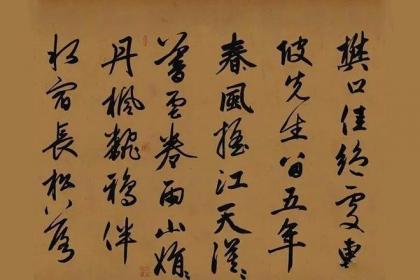 樊口佳絕處東
坡先生留五年
春風搖江天漠〻
暮雲卷雨山娟〻
丹楓翻鴉伴
水宿長松落